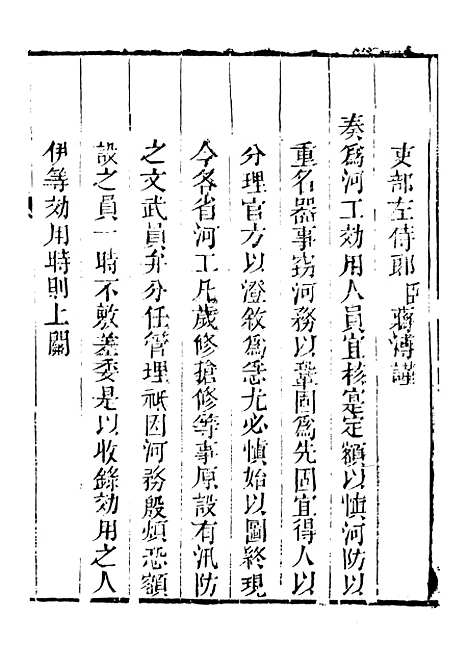 吏部左侍郎臣蔣溥謹
奏爲河工効用人員宜核寔定額以愼河防以
重名器事竊河務以鞏固爲先固宜得人以
分理官方以澄敘爲急尤必慎始以圖終現
今各省河工凡歲修搶修等事原設有汛防
之文武員弁分任管理祇因河務殷煩恐額
設之員一時不敷差委是以收錄効用之人
伊等効用時則上闕